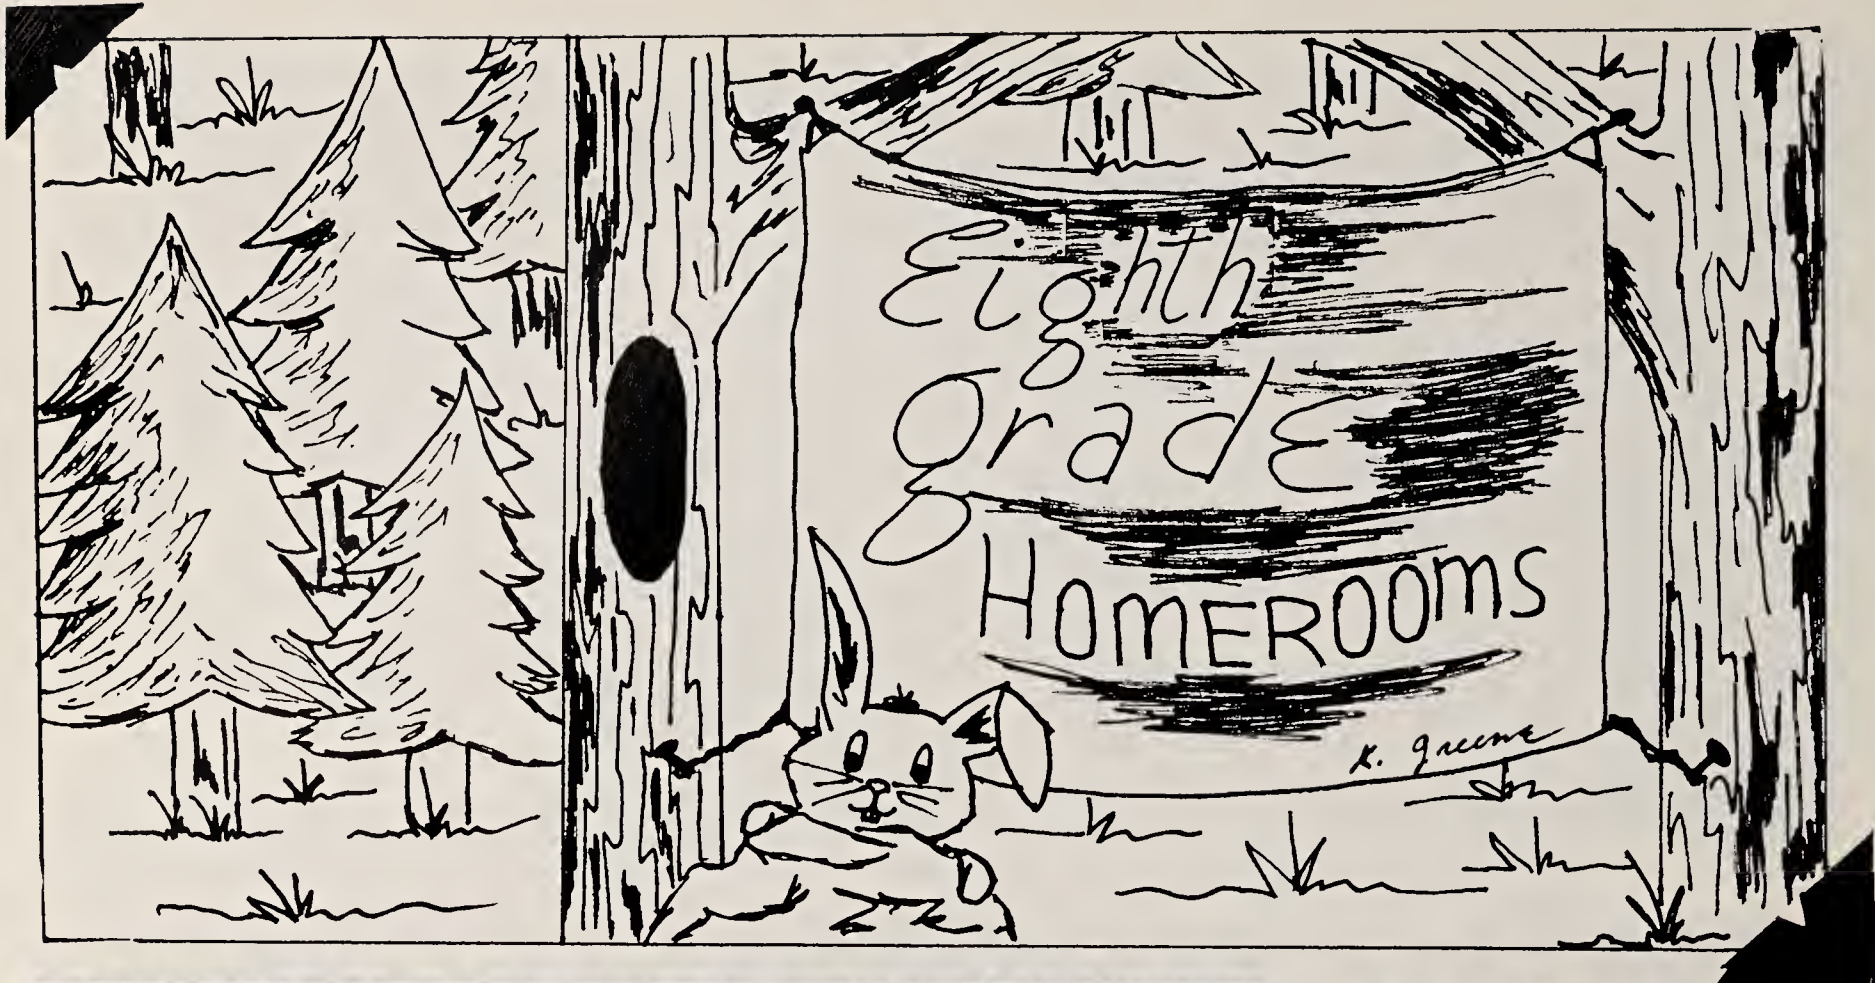 Eighth
gradE
HOMEROOmS
K. Greene